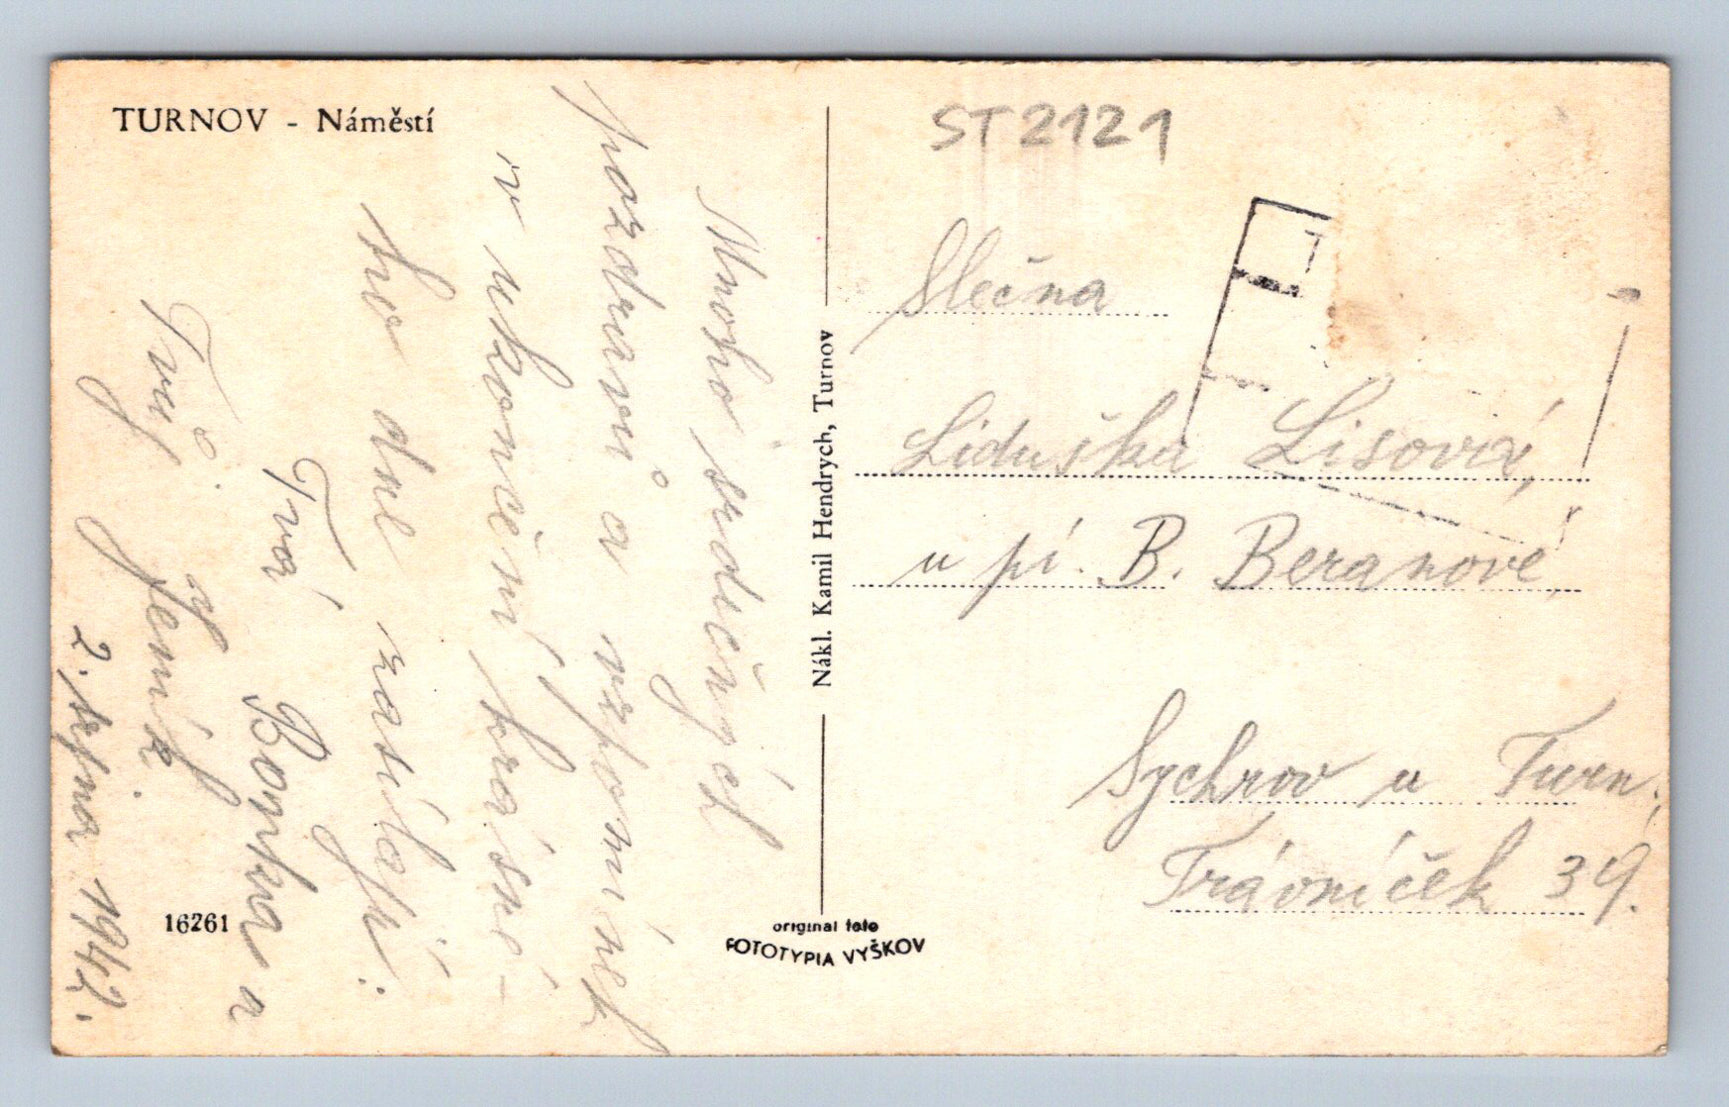 TURNOV - Náměstí
Mnoho srdečných
pozdravů a vzpomínek
v ukončení krásné-
ho dne zasílají:
Tvá Bonka a
Tvůj Jeník
2. srpna 1942.
16261
Nákl. Kamil Hendrych, Turnov
original foto
FOTOTYPIA VYŠKOV
ST2121
Slečna
Liduška Lisová,
u pí. B. Beranové
Sychrov u Turn.,
Trávníček 39.